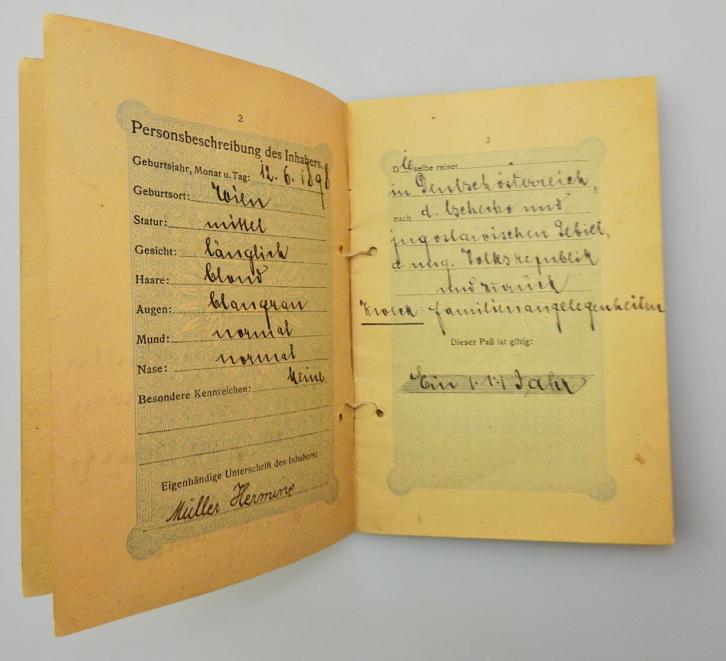 2
Personsbeschreibung des Inhabers.
Geburtsjahr, Monat u. Tag: 12. 6. 1898
Geburtsort: Wien
Statur: mittel
Gesicht: länglich
Haare: blond
Augen: blaugrau
Mund: normal
Nase: normal
Besondere Kennzeichen: keine
Eigenhändige Unterschrift des Inhabers:
Müller Hermine
3
Dieselbe reiset
in Deutschösterreich,
nach d. tschecho und
jugoslawischen Gebiet,
d. ung. Volksrepublik
und zurück
Zweck: Familienangelegenheiten
Dieser Paß ist giltig:
Ein /: 1 :/ Jahr